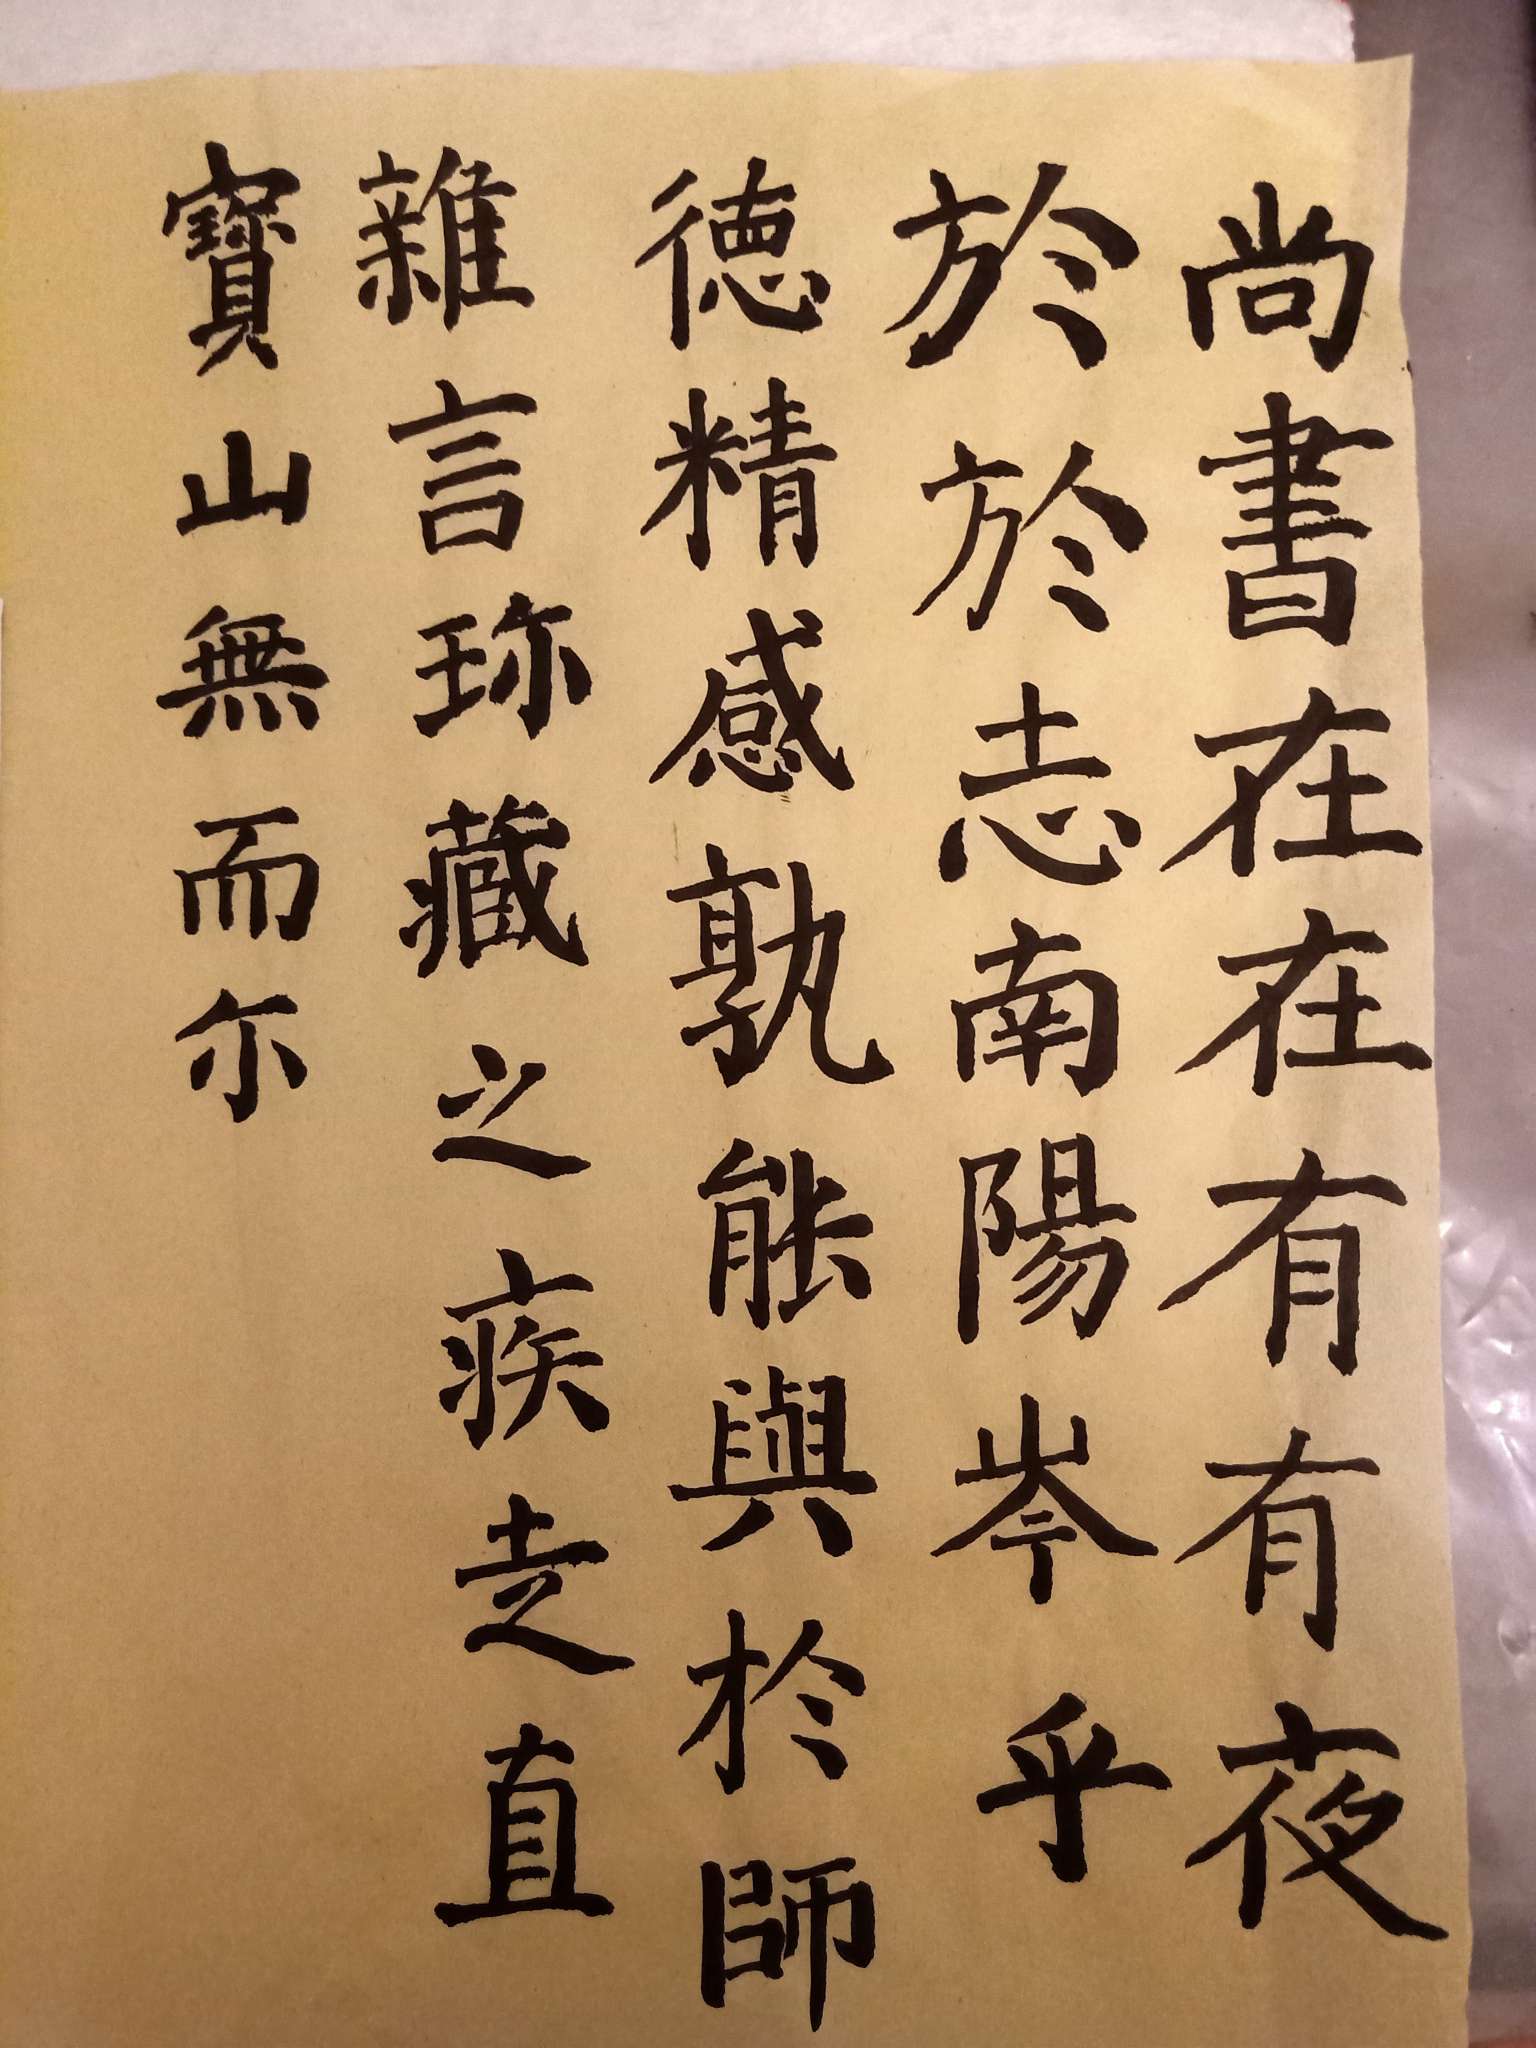 尚書在在有有夜
於於志南陽岑乎
德精感孰能與於師
雜言珎藏之疾走直
寶山無而尓